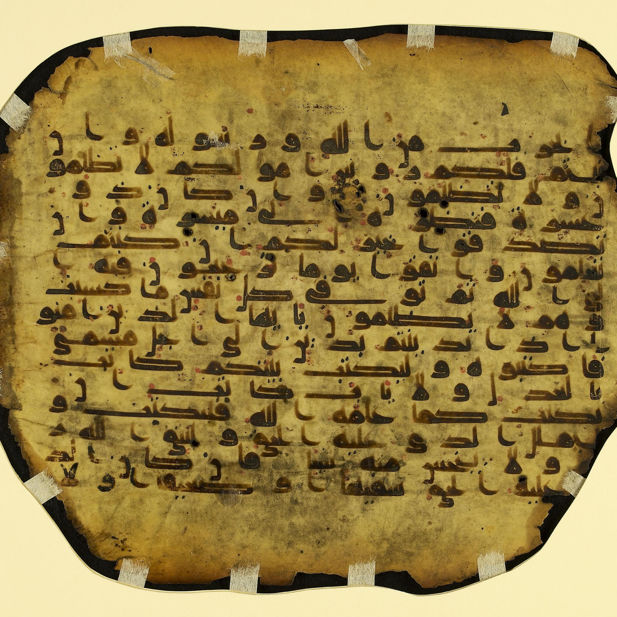 ا بحرب من الله و رسوله و ان
تبتم فلكم روس امولكم لا تظلمو
ن و لا تظلمون و ان كان ذو
عسرة فنظرة الى ميسرة و ان
تصدقوا خير لكم ان كنتم
تعلمون و اتقوا يوما ترجعون فيه
الى الله ثم توفى كل نفس ما كسبت
و هم لا يظلمون يايها الذين امنو
ا اذا تداينتم بدين الى اجل مسمى
فاكتبوه و ليكتب بينكم كاتب
بالعدل و لا ياب كاتب ان
يكتب كما علمه الله فليكتب و
ليملل الذي عليه الحق و ليتق الله ر
به و لا يبخس منه شيا فان كان الذي
عليه الحق سفيها او ضعيفا او لا